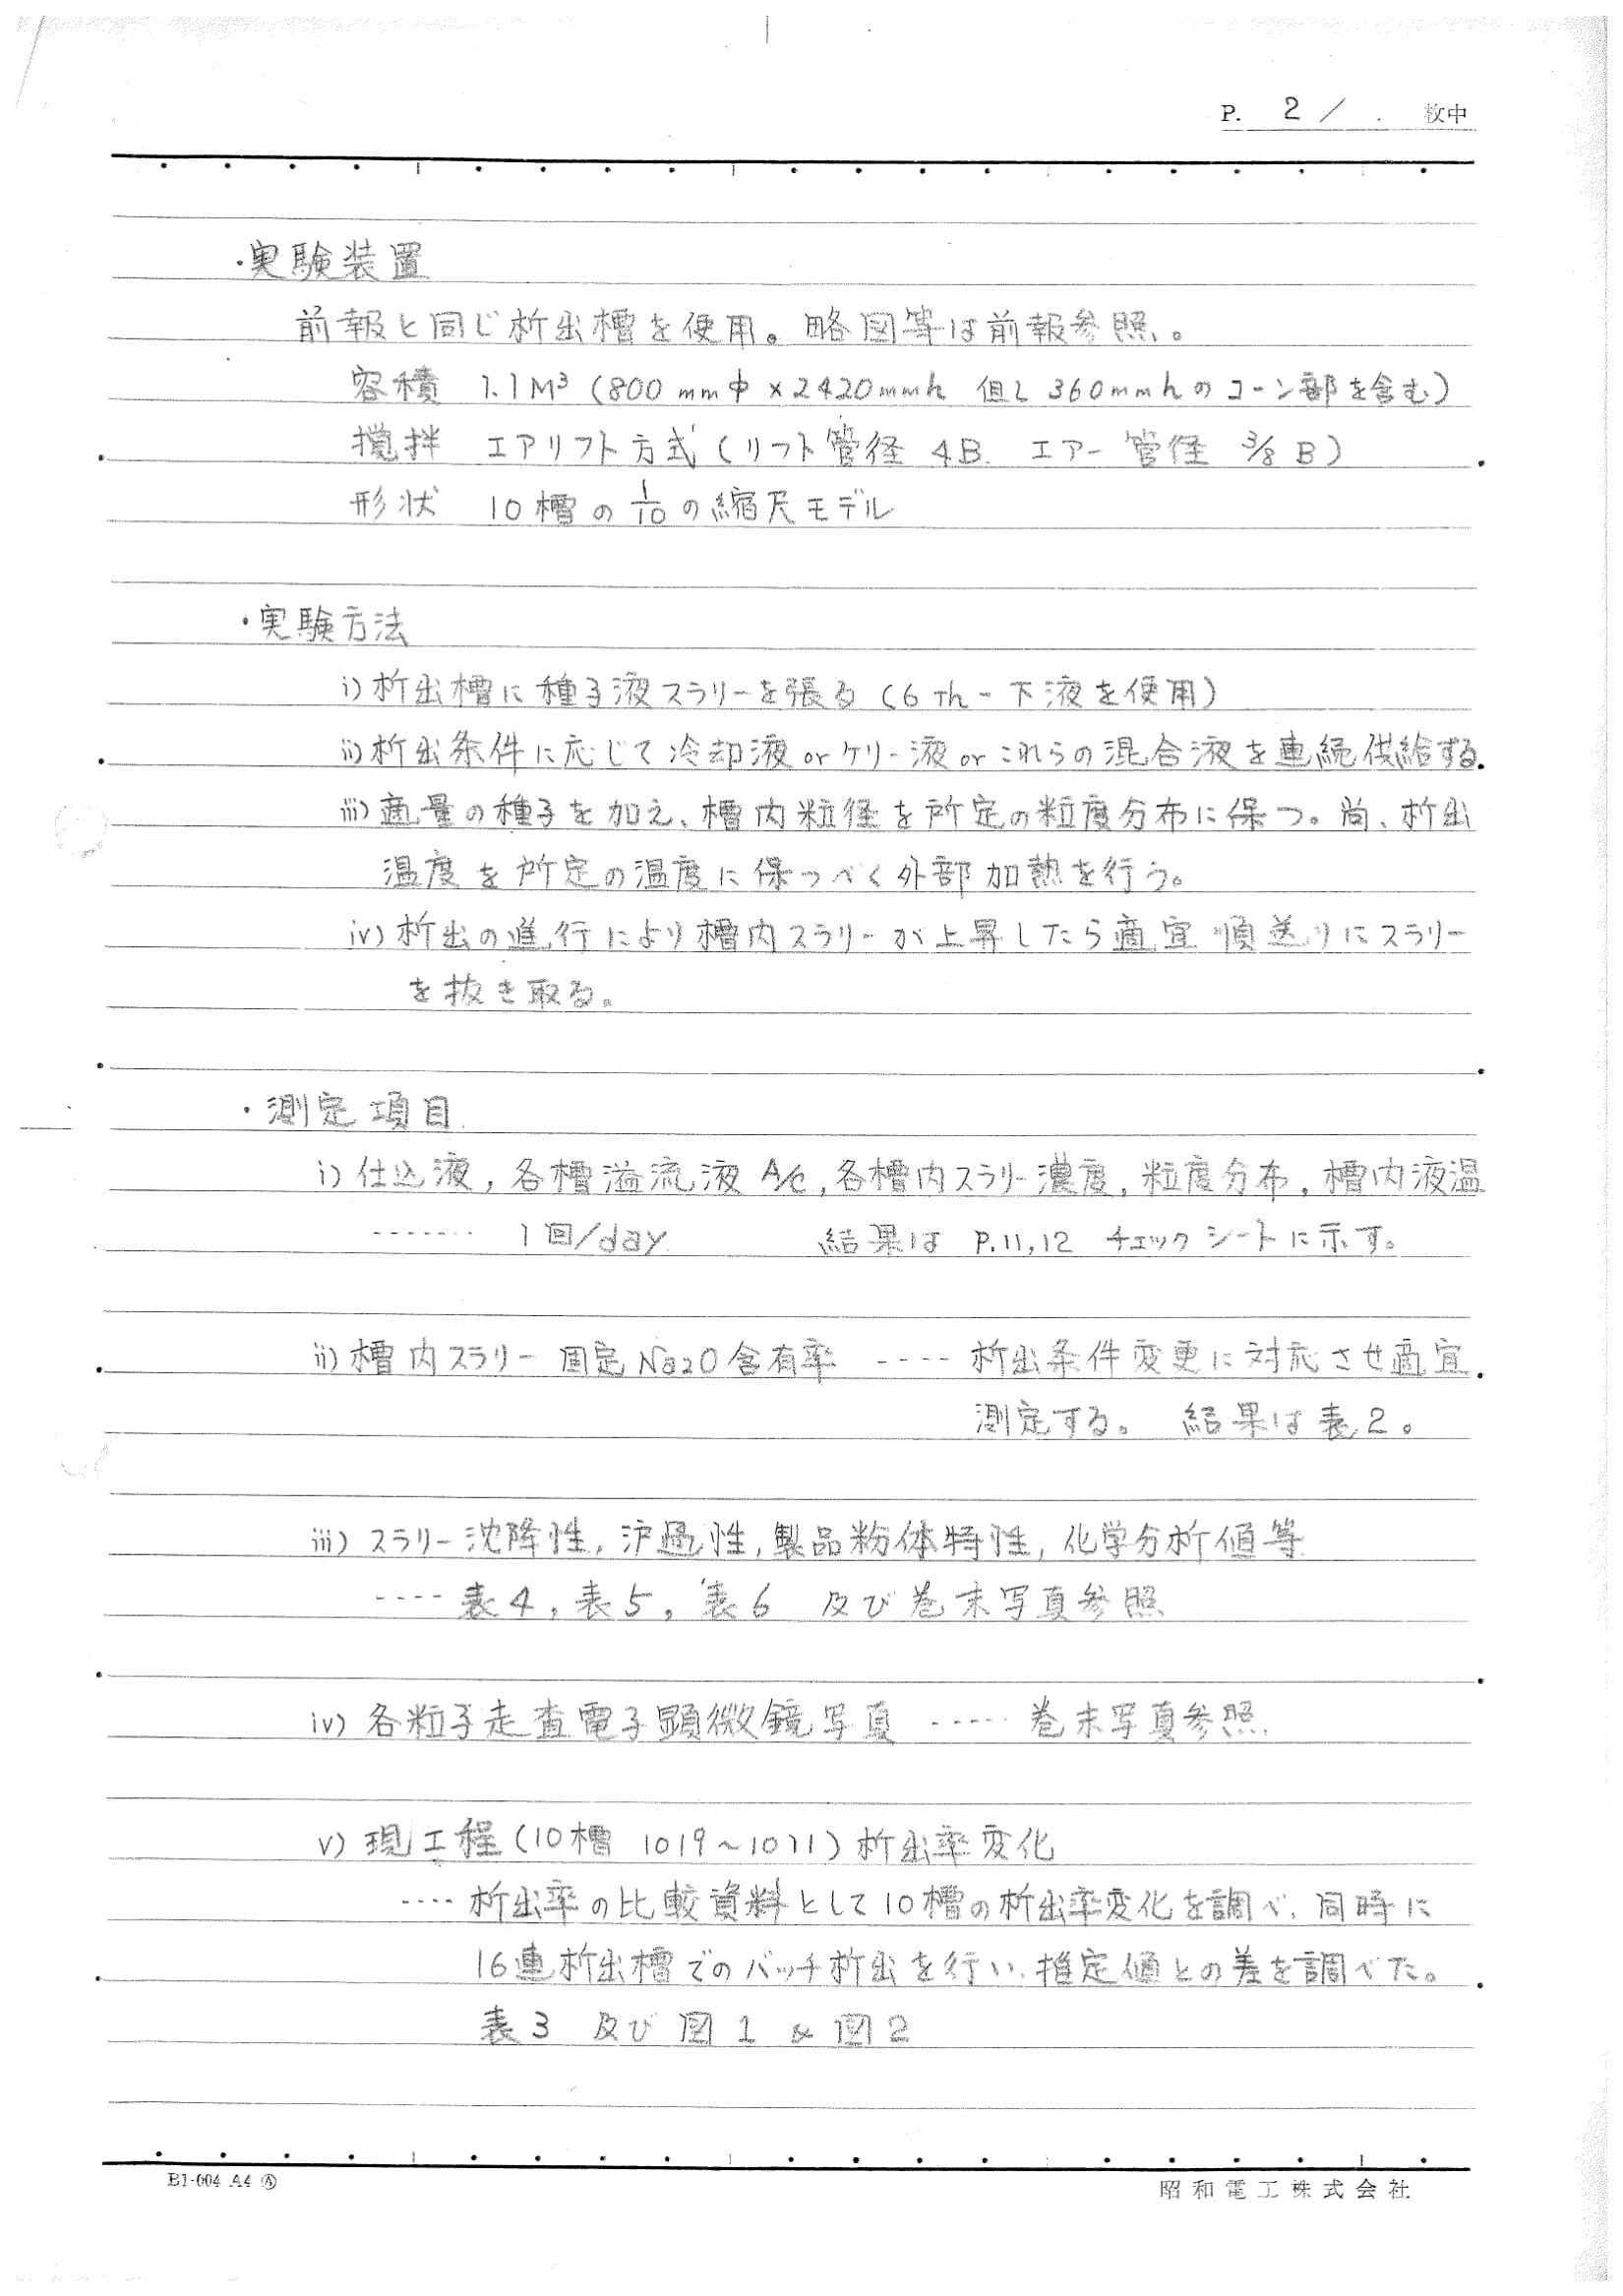 P. 2 / . 枚中
・実験装置
前報と同じ析出槽を使用。略図等は前報参照。
容積 1.1M³ (800mmφ×2420mmh 但し360mmhのコーン部を含む)
撹拌 エアリフト方式(リフト管径 4B. エアー管径 3/8 B)
形状 10槽の1/10の縮尺モデル
・実験方法
i) 析出槽に種子液スラリーを張る(6Th-下液を使用)
ii) 析出条件に応じて冷却液orケリー液orこれらの混合液を連続供給する.
iii) 適量の種子を加え、槽内粒径を所定の粒度分布に保つ。尚、析出
温度を所定の温度に保つべく外部加熱を行う。
iv) 析出の進行により槽内スラリーが上昇したら適宜順送りにスラリー
を抜き取る。
・測定項目
i) 仕込液, 各槽溢流液 A/C, 各槽内スラリー濃度, 粒度分布, 槽内液温
------- 1回/day 結果は P.11,12 チェックシートに示す。
ii) 槽内スラリー固定Na2O含有率 ---- 析出条件変更に対応させ適宜
測定する。 結果は表2。
iii) スラリー沈降性, 沪過性, 製品粉体特性, 化学分析値等
---- 表4, 表5, 表6 及び巻末写真参照
iv) 各粒子走査電子顕微鏡写真 ----- 巻末写真参照
v) 現工程(10槽 1019~1011)析出率変化
---- 析出率の比較資料として10槽の析出率変化を調べ、同時に
16連析出槽でのバッチ析出を行い、推定値との差を調べた。
表3 及び 図1 & 図2
B1-004 A4 Ⓐ
昭和電工株式会社